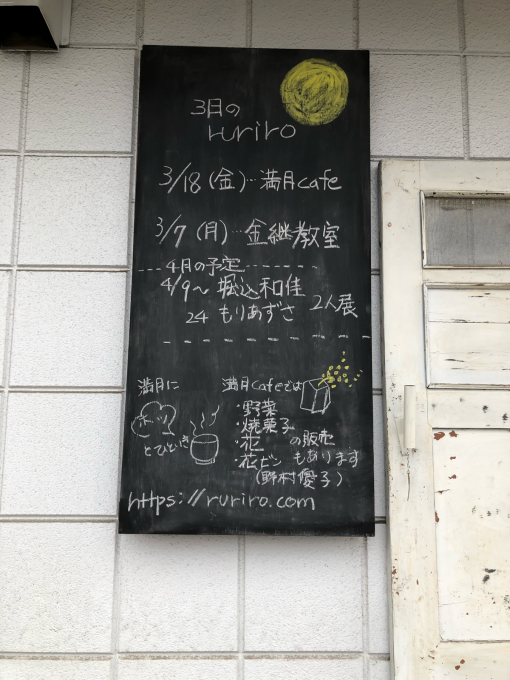 3月の
ruriro
3/18(金)…満月cafe
3/7(月)…金継教室
4月の予定
4/9〜堀込和佳
24 もりあずさ 2人展
満月に
ホッ
とひといき
満月cafeでは
・野菜
・焼菓子
・花 の販売
・花ビン もあります
(野村優子)
https://ruriro.com